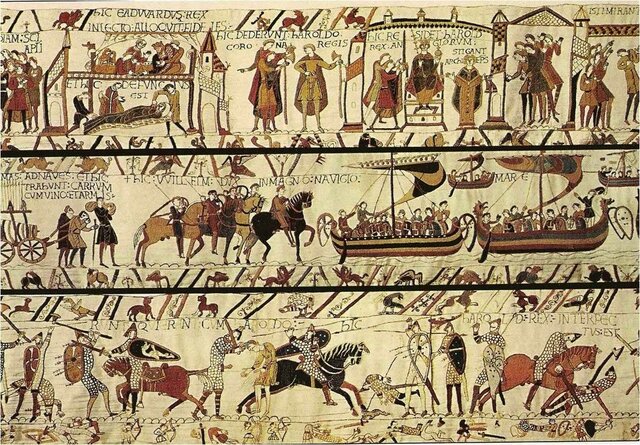 HIC EADWARDVS REX
IN LECTO ALLOQVIT FIDELES:
ET HIC
DEFVNCTVS
EST
HIC DEDERVNT: HAROLDO:
CORONA REGIS
HIC RESIDET: HAROLD
REX: ANGLORVM:
STIGANT
ARCHIEPS
ISTI MIRANT
AD NAVES: ET HIC
TRAHVNT: CARRVM
CVM VINO: ET ARMIS:
HIC: WILLELM: DVX
IN MAGNO: NAVIGIO:
MARE
CVM
HIC
HAROLD: REX: INTERFEC
TVS: EST